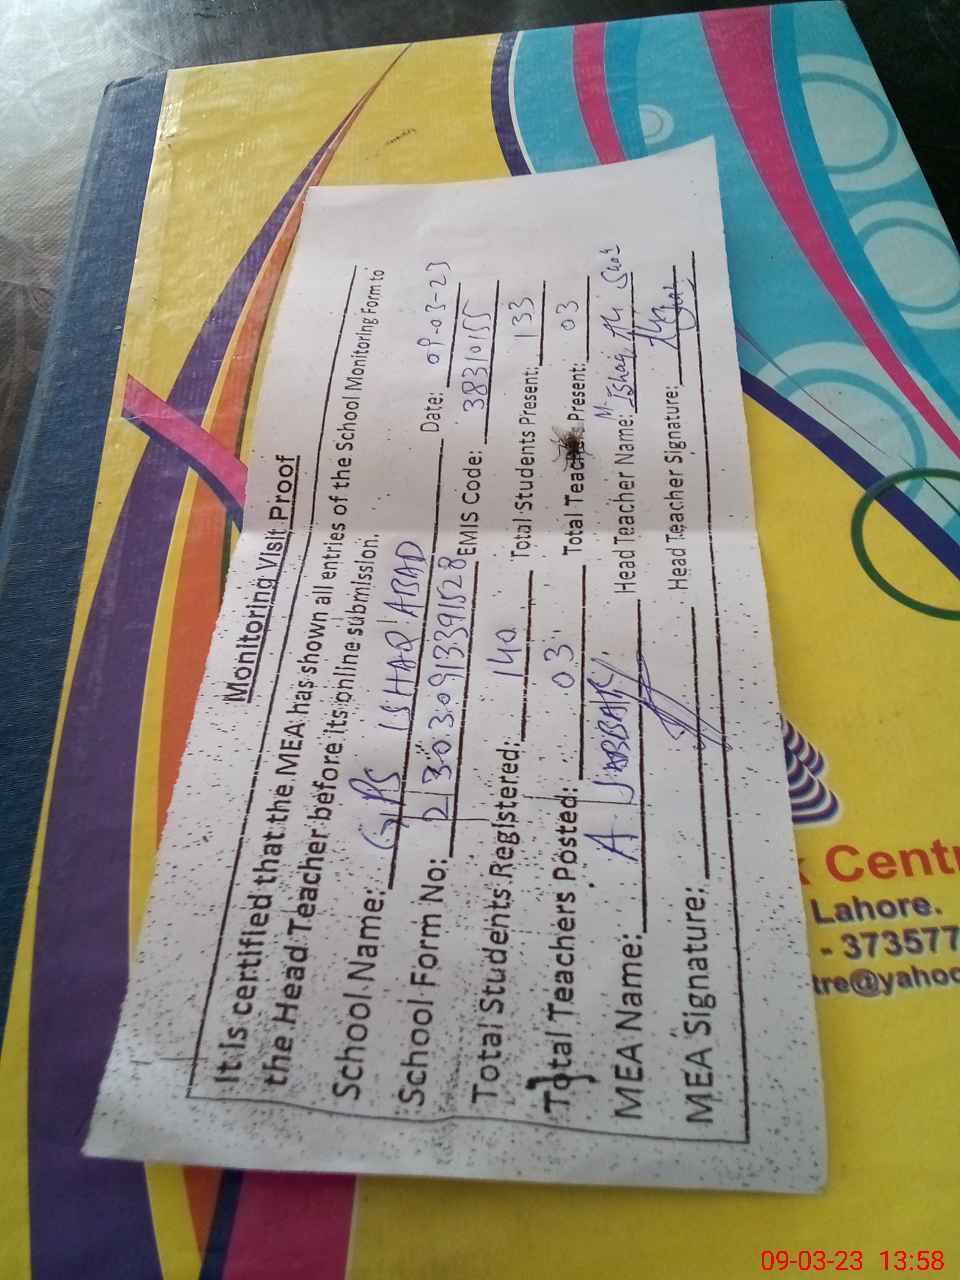 Monitoring Visit Proof
It is certified that the MEA has shown all entries of the School Monitoring Form to
the Head Teacher before its online submission.
School Name: GPS ISHAQ ABAD Date: 09-03-23
School Form No: 23030913391528 EMIS Code: 38310155
Total Students Registered: 140 Total Students Present: 133
Total Teachers Posted: 03 Total Teachers Present: 03
MEA Name: A JABBAR Head Teacher Name: M. Ishaq
MEA Signature: Head Teacher Signature:
k Centr
Lahore.
- 373577
tre@yahoo
09-03-23 13:58